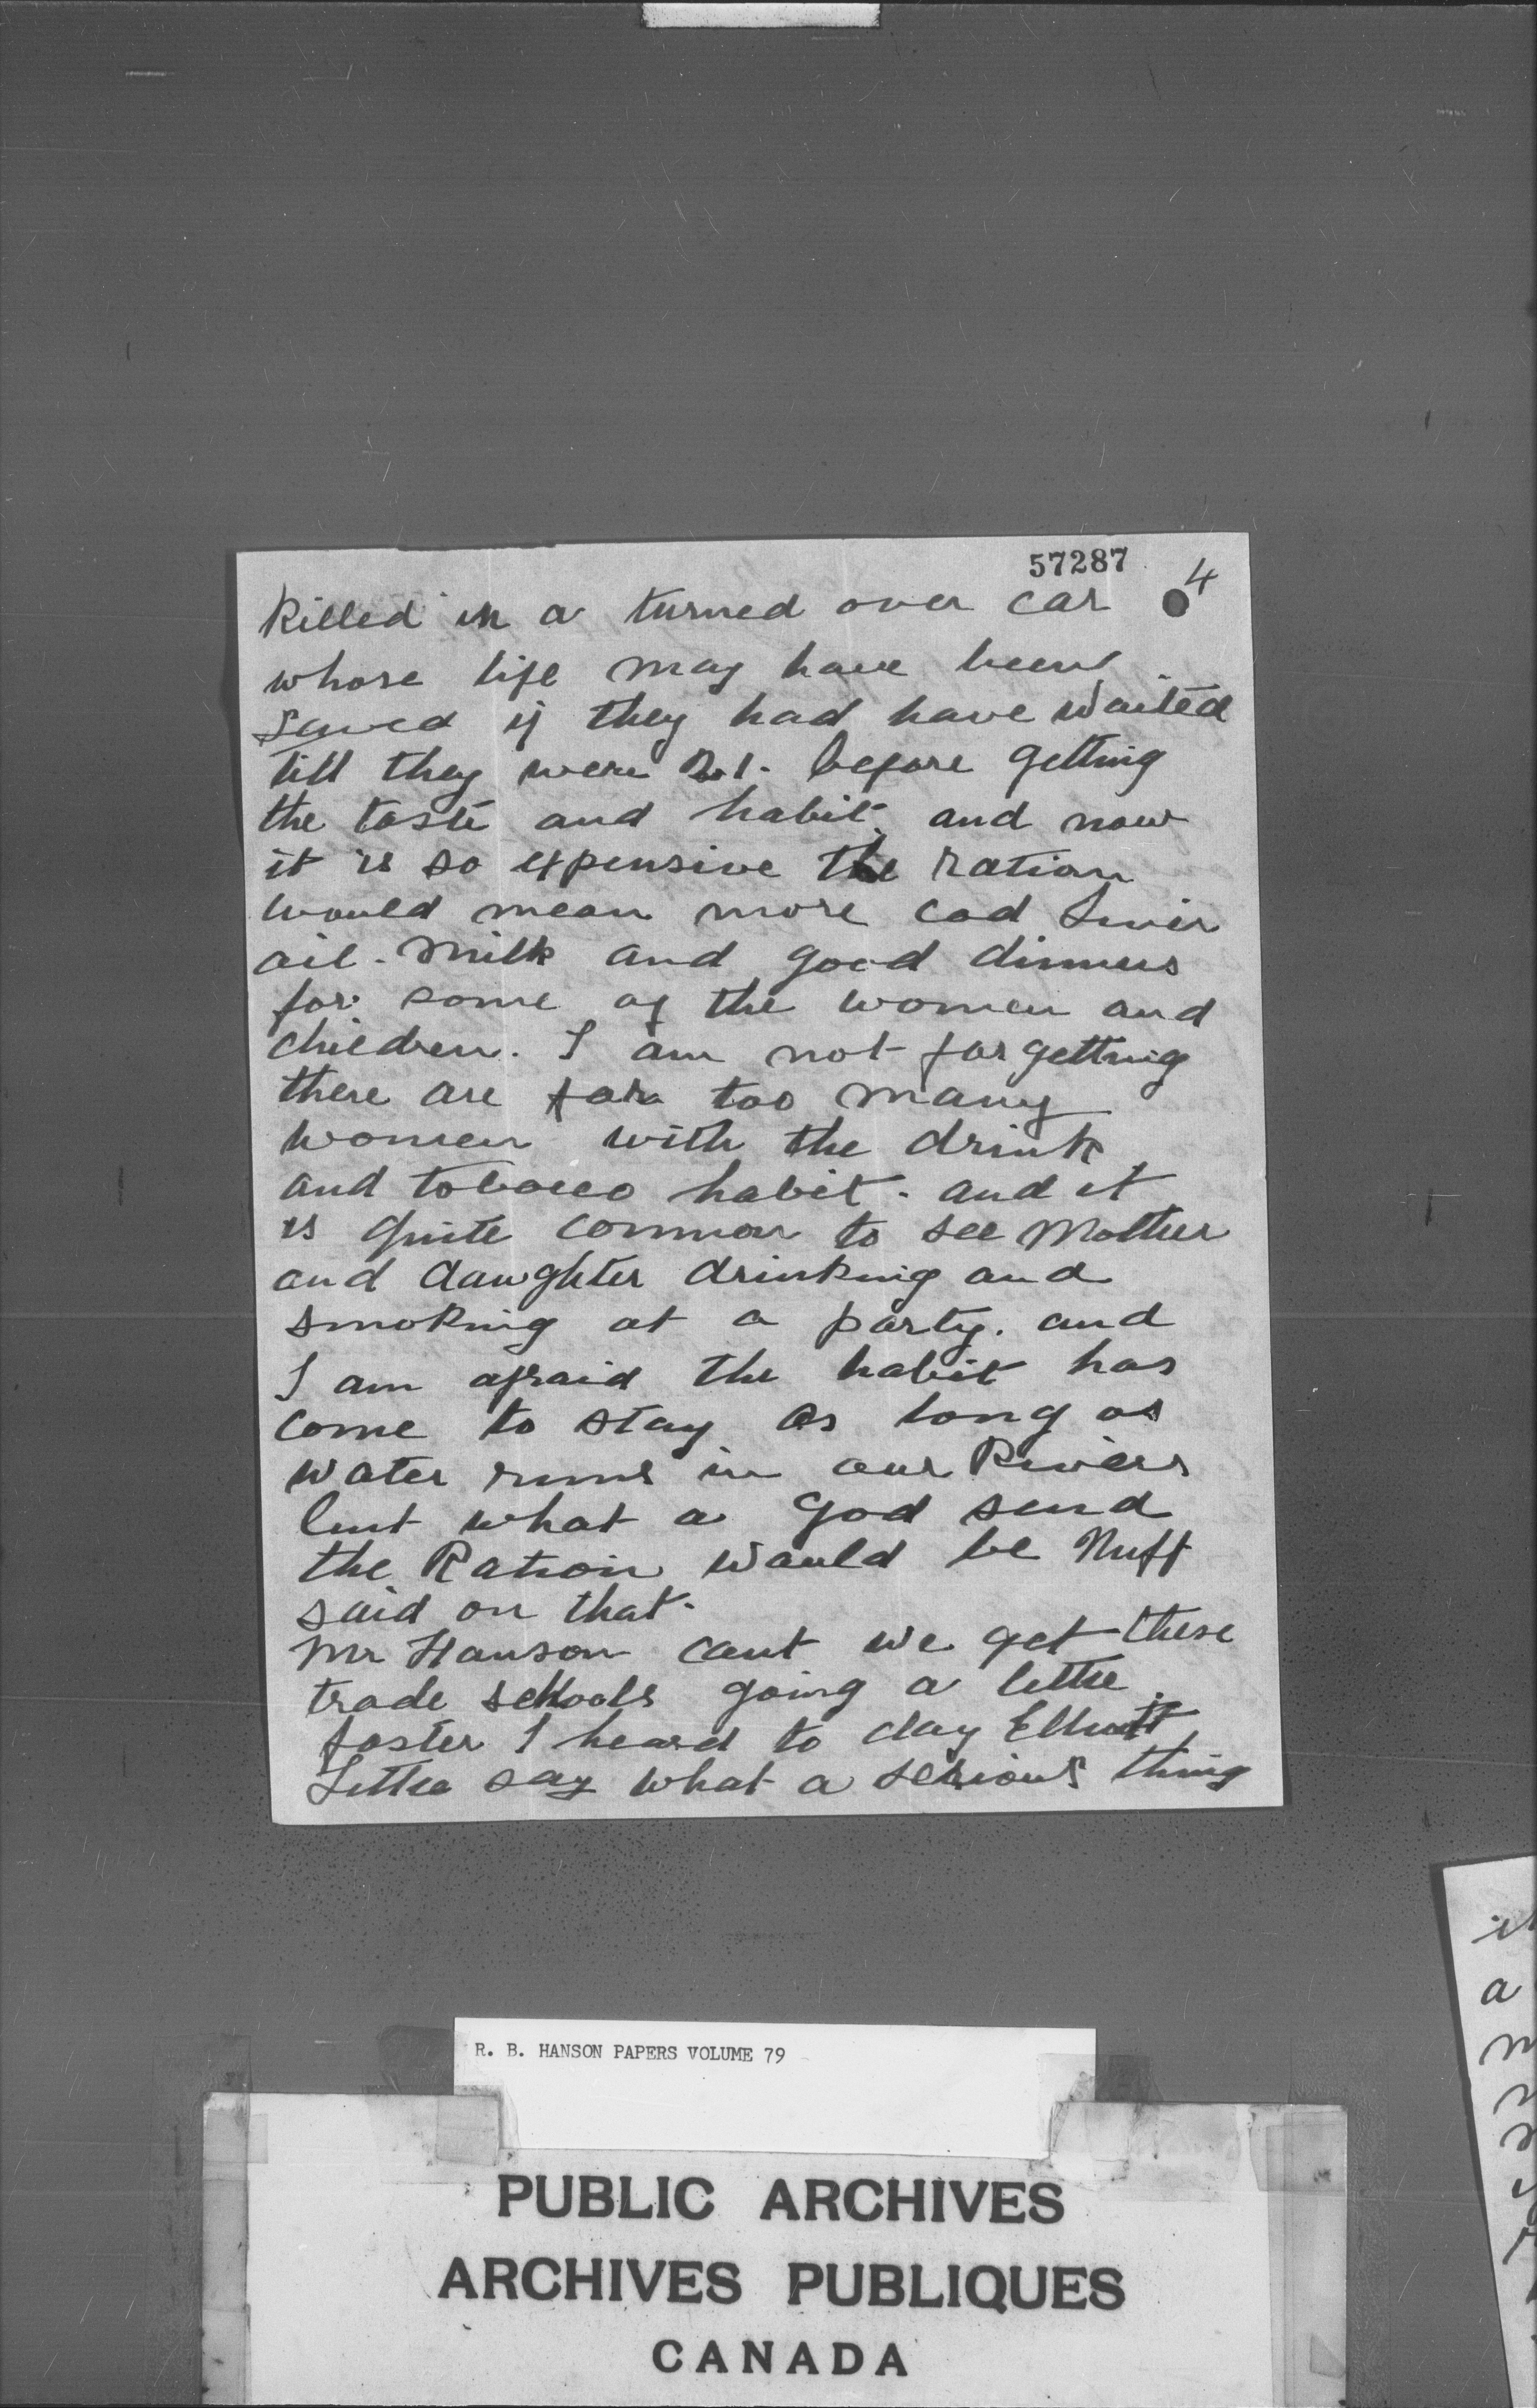 57287
4
killed in a turned over car
whose life may have been
saved if they had have waited
till they were 21. before getting
the taste and habit. and now
it is so expensive the ration
would mean more cod Liver
oil. milk and good dinners
for some of the women and
children. I am not forgetting
there are far too many
women with the drink
and tobacco habit. and it
is quite common to see Mother
and daughter drinking and
smoking at a party. and
I am afraid the habit has
come to stay as long as
water runs in our Rivers
but what a god send
the Ration would be Nuff
said on that.
Mr Hanson cant we get these
trade schools going a little
faster I heard to day Elliott
Little say what a serious thing
R. B. HANSON PAPERS VOLUME 79
PUBLIC ARCHIVES
ARCHIVES PUBLIQUES
CANADA